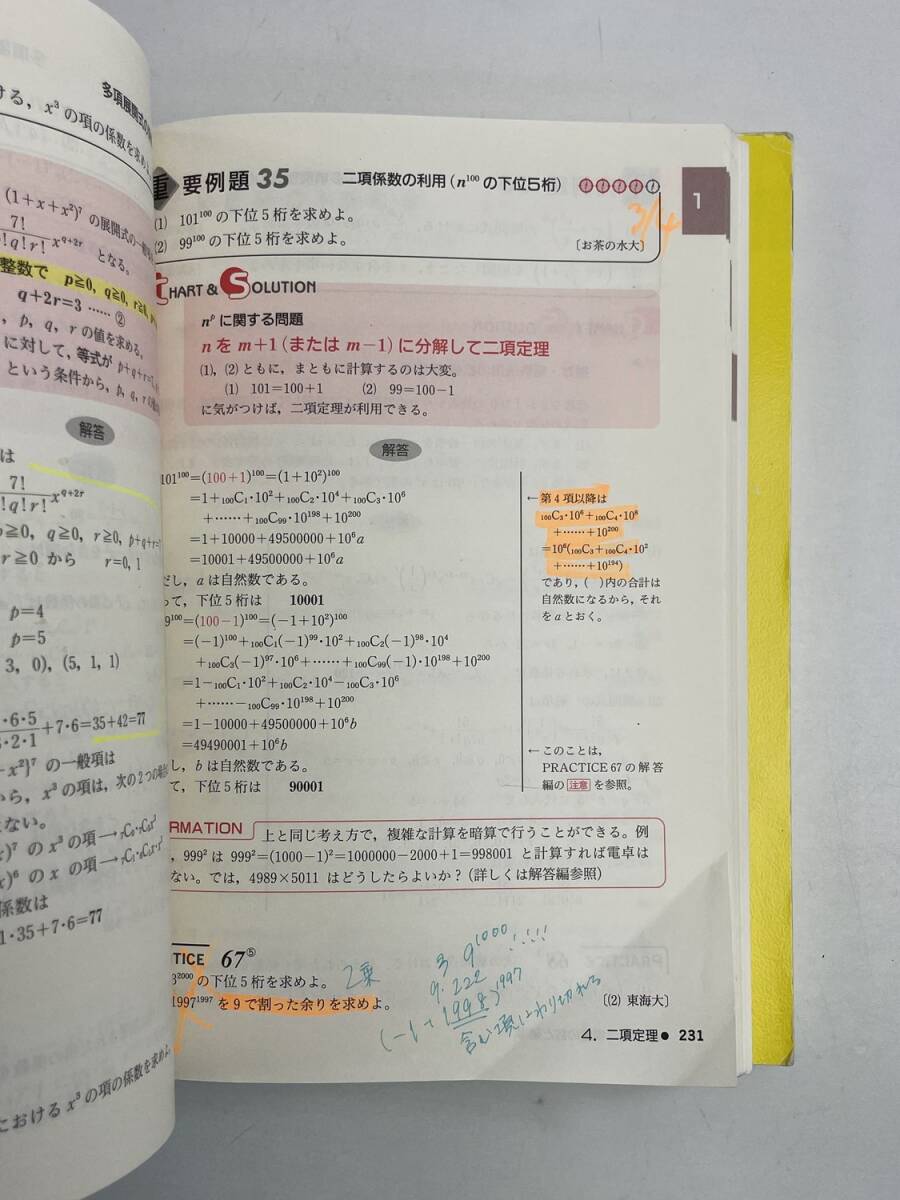 多項展開式の
ける，x³の項の係数を求め
(1+x+x²)⁷ の展開式の一般
7!
!q!r! x^{q+2r} となる。
整数で p≧0, q≧0, r≧0,
q+2r=3 …… ②
, p, q, r の値を求める。
に対して，等式が p+q+r=
という条件から，p, q,
解答
は
7!
!q!r! x^{q+2r}
≧0, q≧0, r≧0, p+q+r=7
r≧0 から r=0, 1
p=4
p=5
3, 0), (5, 1, 1)
・6・5
3・2・1 +7・6=35+42=77
x²)⁷ の一般項は
から，x³の項は，次の2つの場合
ない。
)⁷ の x³ の項 →
)⁶ の x の項 →
係数は
1・35+7・6=77
における x³ の項の係数を求めよ
重要例題 35 二項係数の利用（n¹⁰⁰ の下位5桁）
1
(1) 101¹⁰⁰ の下位5桁を求めよ。
3/4
(2) 99¹⁰⁰ の下位5桁を求めよ。
〔お茶の水大〕
CHART & SOLUTION
nᵖ に関する問題
n を m+1（または m−1）に分解して二項定理
(1), (2)ともに，まともに計算するのは大変。
(1) 101=100+1 (2) 99=100−1
に気がつけば，二項定理が利用できる。
解答
101¹⁰⁰=(100+1)¹⁰⁰=(1+10²)¹⁰⁰
=1+₁₀₀C₁・10²+₁₀₀C₂・10⁴+₁₀₀C₃・10⁶
+……+₁₀₀C₉₉・10¹⁹⁸+10²⁰⁰
=1+10000+49500000+10⁶a
=10001+49500000+10⁶a
だし，a は自然数である。
って，下位5桁は 10001
9¹⁰⁰=(100−1)¹⁰⁰=(−1+10²)¹⁰⁰
=(−1)¹⁰⁰+₁₀₀C₁(−1)⁹⁹・10²+₁₀₀C₂(−1)⁹⁸・10⁴
+₁₀₀C₃(−1)⁹⁷・10⁶+……+₁₀₀C₉₉(−1)・10¹⁹⁸+10²⁰⁰
=1−₁₀₀C₁・10²+₁₀₀C₂・10⁴−₁₀₀C₃・10⁶
+……−₁₀₀C₉₉・10¹⁹⁸+10²⁰⁰
=1−10000+49500000+10⁶b
=49490001+10⁶b
し，b は自然数である。
て，下位5桁は 90001
←第4項以降は
₁₀₀C₃・10⁶+₁₀₀C₄・10⁸
+……+10²⁰⁰
=10⁶(₁₀₀C₃+₁₀₀C₄・10²
+……+10¹⁹⁴)
であり，( )内の合計は
自然数になるから，それ
を a とおく。
←このことは，
PRACTICE 67 の解答
編の 注意 を参照。
RMATION 上と同じ考え方で，複雑な計算を暗算で行うことができる。例
，999² は 999²=(1000−1)²=1000000−2000+1=998001 と計算すれば電卓は
ない。では，4989×5011 はどうしたらよいか？（詳しくは解答編参照）
TICE 67⑤
3²⁰⁰⁰ の下位5桁を求めよ。 2乗
1997¹⁹⁹⁷ を9で割った余りを求めよ。
〔(2) 東海大〕
9¹⁰⁰⁰
9・222
(−1+1998)¹⁹⁹⁷
4. 二項定理● 231